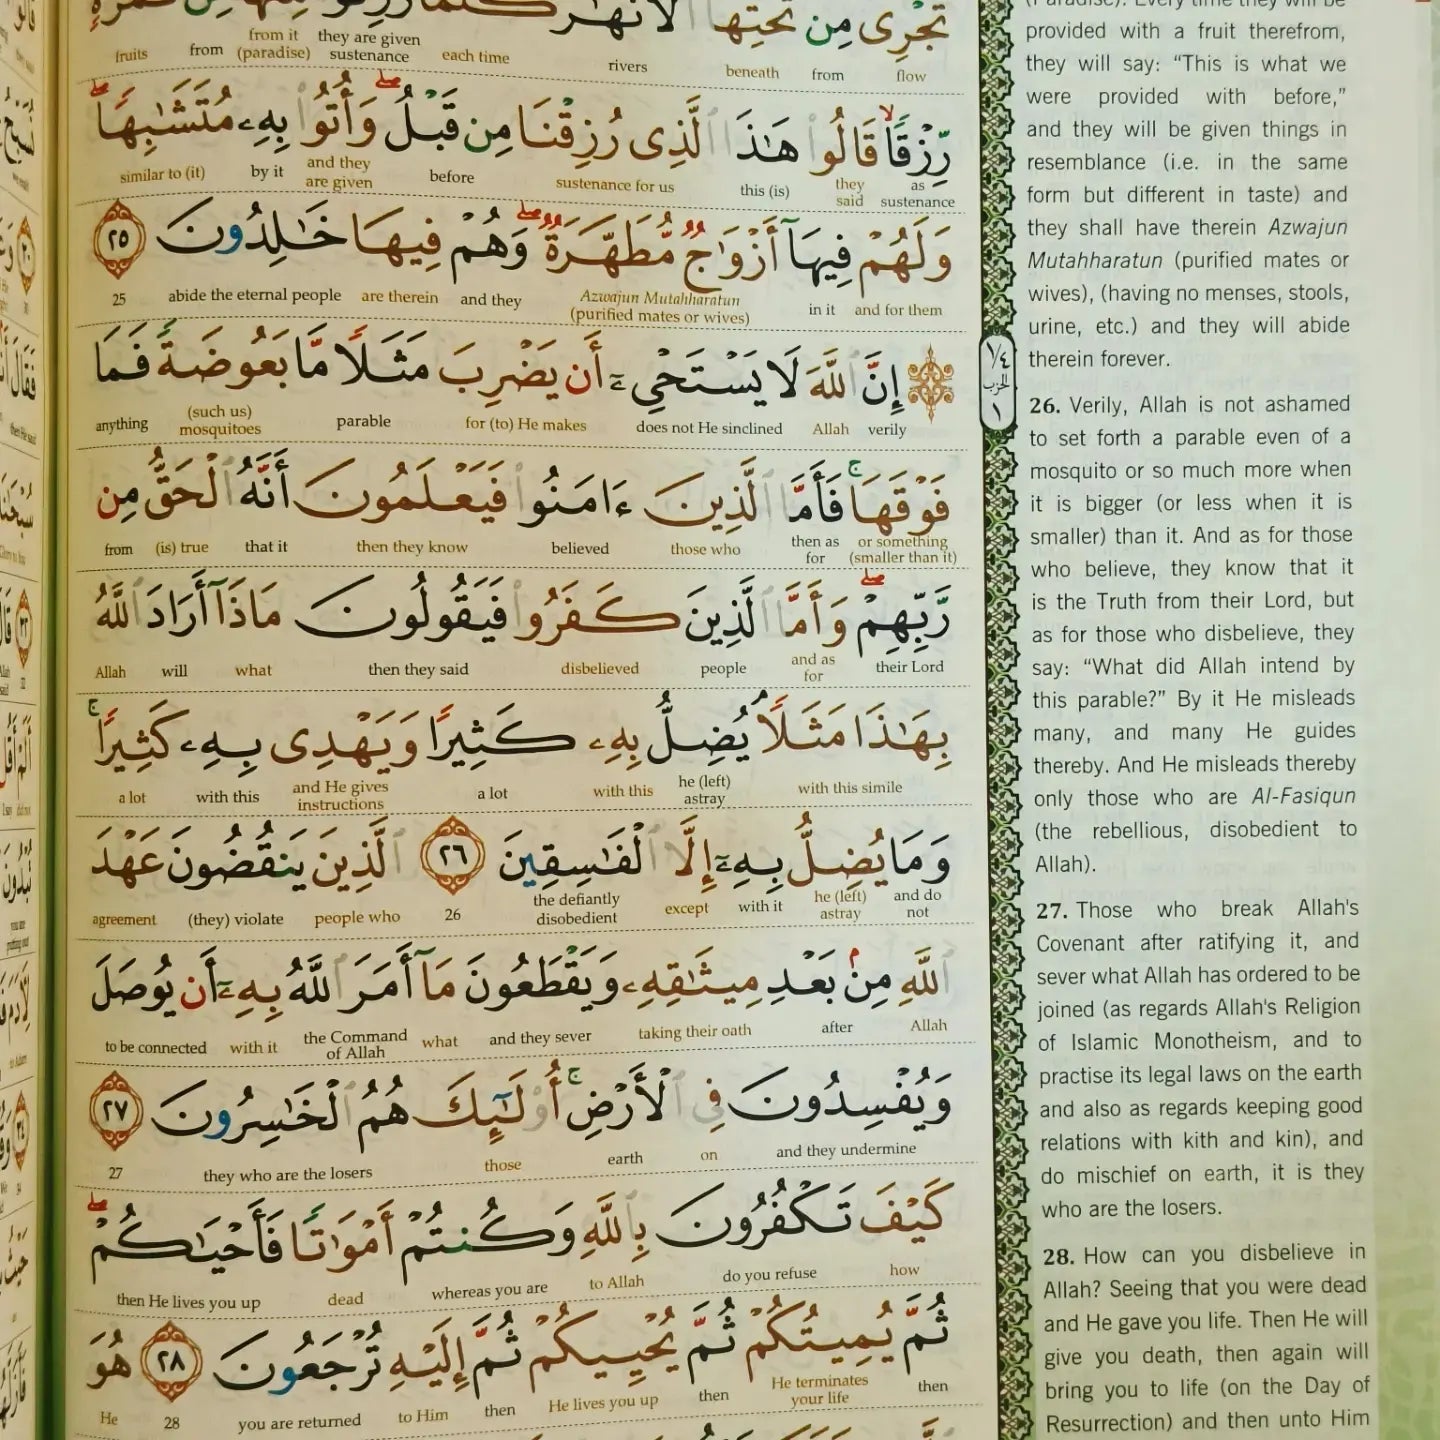 تَجْرِى مِن تَحْتِهَا ٱلْأَنْهَٰرُ
flow from beneath rivers each time they are given sustenance from it (paradise) from fruits
رِّزْقًا قَالُوا۟ هَٰذَا ٱلَّذِى رُزِقْنَا مِن قَبْلُ وَأُتُوا۟ بِهِۦ مُتَشَٰبِهًا
as sustenance they said this (is) sustenance for us before and they are given by it similar to (it)
وَلَهُمْ فِيهَآ أَزْوَٰجٌ مُّطَهَّرَةٌ وَهُمْ فِيهَا خَٰلِدُونَ ٢٥
and for them in it Azwajun Mutahharatun (purified mates or wives) and they are therein abide the eternal people 25
إِنَّ ٱللَّهَ لَا يَسْتَحْىِۦٓ أَن يَضْرِبَ مَثَلًا مَّا بَعُوضَةً فَمَا
verily Allah does not He sinclined for (to) He makes parable (such us) mosquitoes anything
فَوْقَهَا فَأَمَّا ٱلَّذِينَ ءَامَنُوا۟ فَيَعْلَمُونَ أَنَّهُ ٱلْحَقُّ مِن
or something (smaller than it) then as for those who believed then they know that it (is) true from
رَّبِّهِمْ وَأَمَّا ٱلَّذِينَ كَفَرُوا۟ فَيَقُولُونَ مَاذَآ أَرَادَ ٱللَّهُ
their Lord and as for people disbelieved then they said what will Allah
بِهَٰذَا مَثَلًا يُضِلُّ بِهِۦ كَثِيرًا وَيَهْدِى بِهِۦ كَثِيرًا
with this simile he (left) astray with this a lot and He gives instructions with this a lot
وَمَا يُضِلُّ بِهِۦٓ إِلَّا ٱلْفَٰسِقِينَ ٢٦ ٱلَّذِينَ يَنقُضُونَ عَهْدَ
and do not he (left) astray with it except the defiantly disobedient 26 people who (they) violate agreement
ٱللَّهِ مِنۢ بَعْدِ مِيثَٰقِهِۦ وَيَقْطَعُونَ مَآ أَمَرَ ٱللَّهُ بِهِۦٓ أَن يُوصَلَ
Allah after taking their oath and they sever what the Command of Allah with it to be connected
وَيُفْسِدُونَ فِى ٱلْأَرْضِ أُو۟لَٰٓئِكَ هُمُ ٱلْخَٰسِرُونَ ٢٧
and they undermine on earth those they who are the losers 27
كَيْفَ تَكْفُرُونَ بِٱللَّهِ وَكُنتُمْ أَمْوَٰتًا فَأَحْيَٰكُمْ
how do you refuse to Allah whereas you are dead then He lives you up
ثُمَّ يُمِيتُكُمْ ثُمَّ يُحْيِيكُمْ ثُمَّ إِلَيْهِ تُرْجَعُونَ ٢٨ هُوَ
then He terminates your life then He lives you up then to Him you are returned 28 He
(Paradise). Every time they will be
provided with a fruit therefrom,
they will say: “This is what we
were provided with before,”
and they will be given things in
resemblance (i.e. in the same
form but different in taste) and
they shall have therein Azwajun
Mutahharatun (purified mates or
wives), (having no menses, stools,
urine, etc.) and they will abide
therein forever.
26. Verily, Allah is not ashamed
to set forth a parable even of a
mosquito or so much more when
it is bigger (or less when it is
smaller) than it. And as for those
who believe, they know that it
is the Truth from their Lord, but
as for those who disbelieve, they
say: “What did Allah intend by
this parable?” By it He misleads
many, and many He guides
thereby. And He misleads thereby
only those who are Al-Fasiqun
(the rebellious, disobedient to
Allah).
27. Those who break Allah's
Covenant after ratifying it, and
sever what Allah has ordered to be
joined (as regards Allah's Religion
of Islamic Monotheism, and to
practise its legal laws on the earth
and also as regards keeping good
relations with kith and kin), and
do mischief on earth, it is they
who are the losers.
28. How can you disbelieve in
Allah? Seeing that you were dead
and He gave you life. Then He will
give you death, then again will
bring you to life (on the Day of
Resurrection) and then unto Him